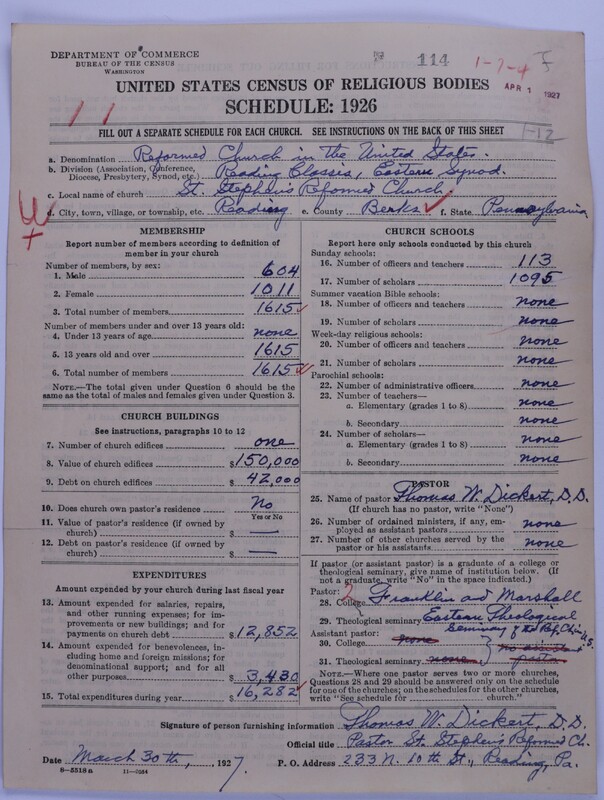 DEPARTMENT OF COMMERCE
BUREAU OF THE CENSUS
WASHINGTON
114
1-7-4
APR 1 1927
UNITED STATES CENSUS OF RELIGIOUS BODIES
SCHEDULE: 1926
FILL OUT A SEPARATE SCHEDULE FOR EACH CHURCH. SEE INSTRUCTIONS ON THE BACK OF THIS SHEET
a. Denomination Reformed Church in the United States.
b. Division (Association, Conference, Diocese, Presbytery, Synod, etc.) Reading Classis, Eastern Synod.
c. Local name of church St. Stephen's Reformed Church
d. City, town, village, or township, etc. Reading e. County Berks f. State Pennsylvania
MEMBERSHIP
Report number of members according to definition of member in your church
Number of members, by sex:
1. Male 604
2. Female 1011
3. Total number of members 1615
Number of members under and over 13 years old:
4. Under 13 years of age none
5. 13 years old and over 1615
6. Total number of members 1615
NOTE.—The total given under Question 6 should be the same as the total of males and females given under Question 3.
CHURCH BUILDINGS
See instructions, paragraphs 10 to 12
7. Number of church edifices one
8. Value of church edifices $150,000
9. Debt on church edifices $42,000
10. Does church own pastor's residence No
Yes or No
11. Value of pastor's residence (if owned by church) $ —
12. Debt on pastor's residence (if owned by church) $ —
EXPENDITURES
Amount expended by your church during last fiscal year
13. Amount expended for salaries, repairs, and other running expenses; for improvements or new buildings; and for payments on church debt $12,852
14. Amount expended for benevolences, including home and foreign missions; for denominational support; and for all other purposes $3,430
15. Total expenditures during year $16,282
CHURCH SCHOOLS
Report here only schools conducted by this church
Sunday schools:
16. Number of officers and teachers 113
17. Number of scholars 1095
Summer vacation Bible schools:
18. Number of officers and teachers none
19. Number of scholars none
Week-day religious schools:
20. Number of officers and teachers none
21. Number of scholars none
Parochial schools:
22. Number of administrative officers none
23. Number of teachers—
a. Elementary (grades 1 to 8) none
b. Secondary none
24. Number of scholars—
a. Elementary (grades 1 to 8) none
b. Secondary none
PASTOR
25. Name of pastor Thomas W. Dickert, D.D.
(If church has no pastor, write "None")
26. Number of ordained ministers, if any, employed as assistant pastors none
27. Number of other churches served by the pastor or his assistants none
If pastor (or assistant pastor) is a graduate of a college or theological seminary, give name of institution below. (If not a graduate, write "No" in the space indicated.)
Pastor:
28. College Franklin and Marshall
29. Theological seminary Eastern Theological Seminary of the Ref. Ch. in U.S.
Assistant pastor:
30. College none no assistant
31. Theological seminary none pastor
NOTE.—Where one pastor serves two or more churches, Questions 28 and 29 should be answered only on the schedule for one of the churches; on the schedules for the other churches, write "See schedule for church."
Signature of person furnishing information Thomas W. Dickert, D.D.
Official title Pastor St. Stephen's Reformed Ch.
Date March 30th, 1927. P. O. Address 233 N. 10th St., Reading, Pa.
8—5518a 11—9034